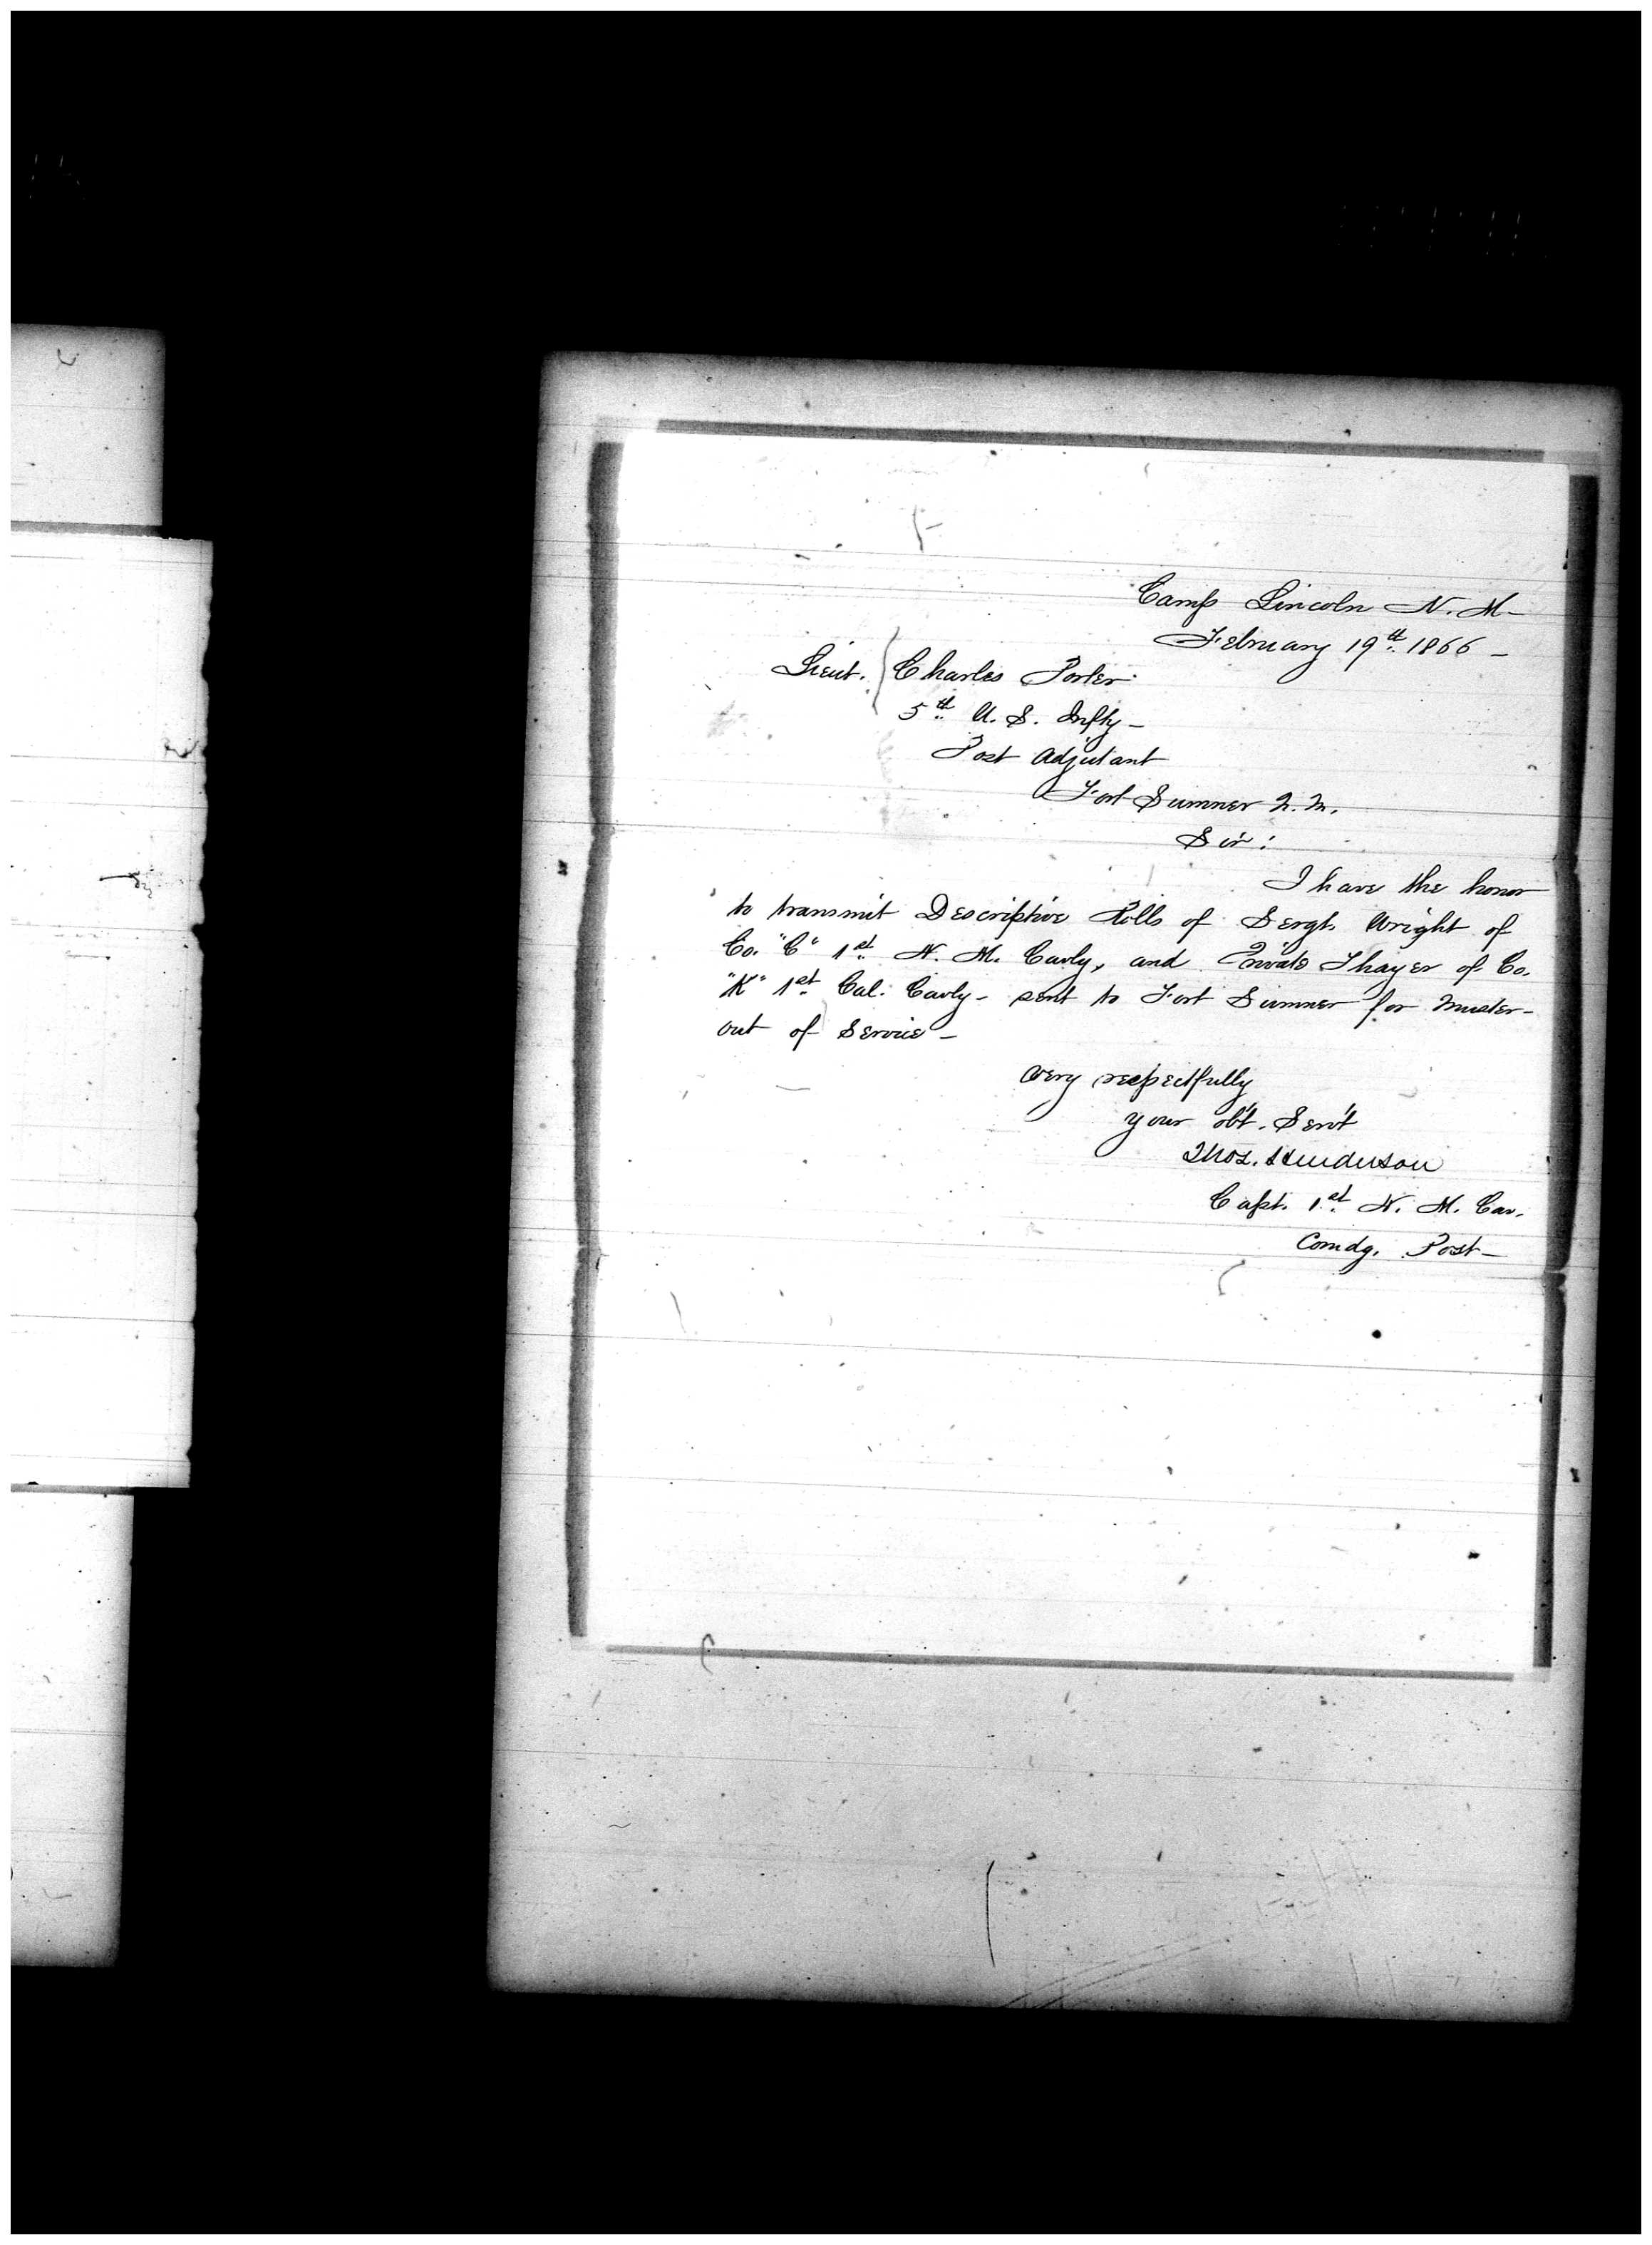 Camp Lincoln N. M.
February 19th 1866
Lieut. Charles Porter
5th U. S. Infty
Post Adjutant
Fort Sumner N. M.
Sir:
I have the honor
to transmit Descriptive Rolls of Sergt. Wright of
Co. "C" 1st N. M. Cavly, and Private Thayer of Co.
"K" 1st Cal. Cavly - sent to Fort Sumner for Muster-
out of Service -
Very respectfully
your obt. Servt
Thos. Henderson
Capt. 1st N. M. Cav.
Comdg. Post